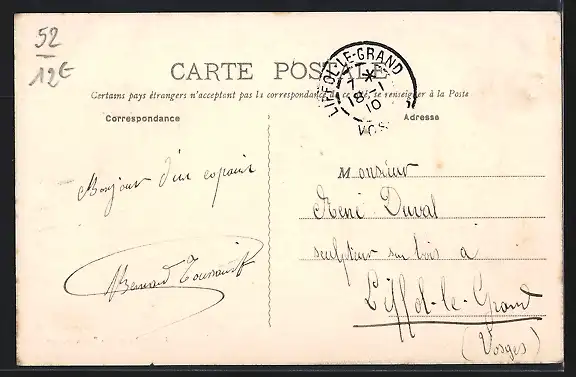 52
12€
CARTE POSTALE
Certains pays étrangers n'acceptant pas la correspondance de ce côté, se renseigner à la Poste
Correspondance
Adresse
LIFFOL-LE-GRAND
7 *
18-1
10
VOS
Bonjour d'un copain
Bernard Toussaint
Monsieur
René Duval
sculpteur sur bois à
Liffol-le-Grand
(Vosges)